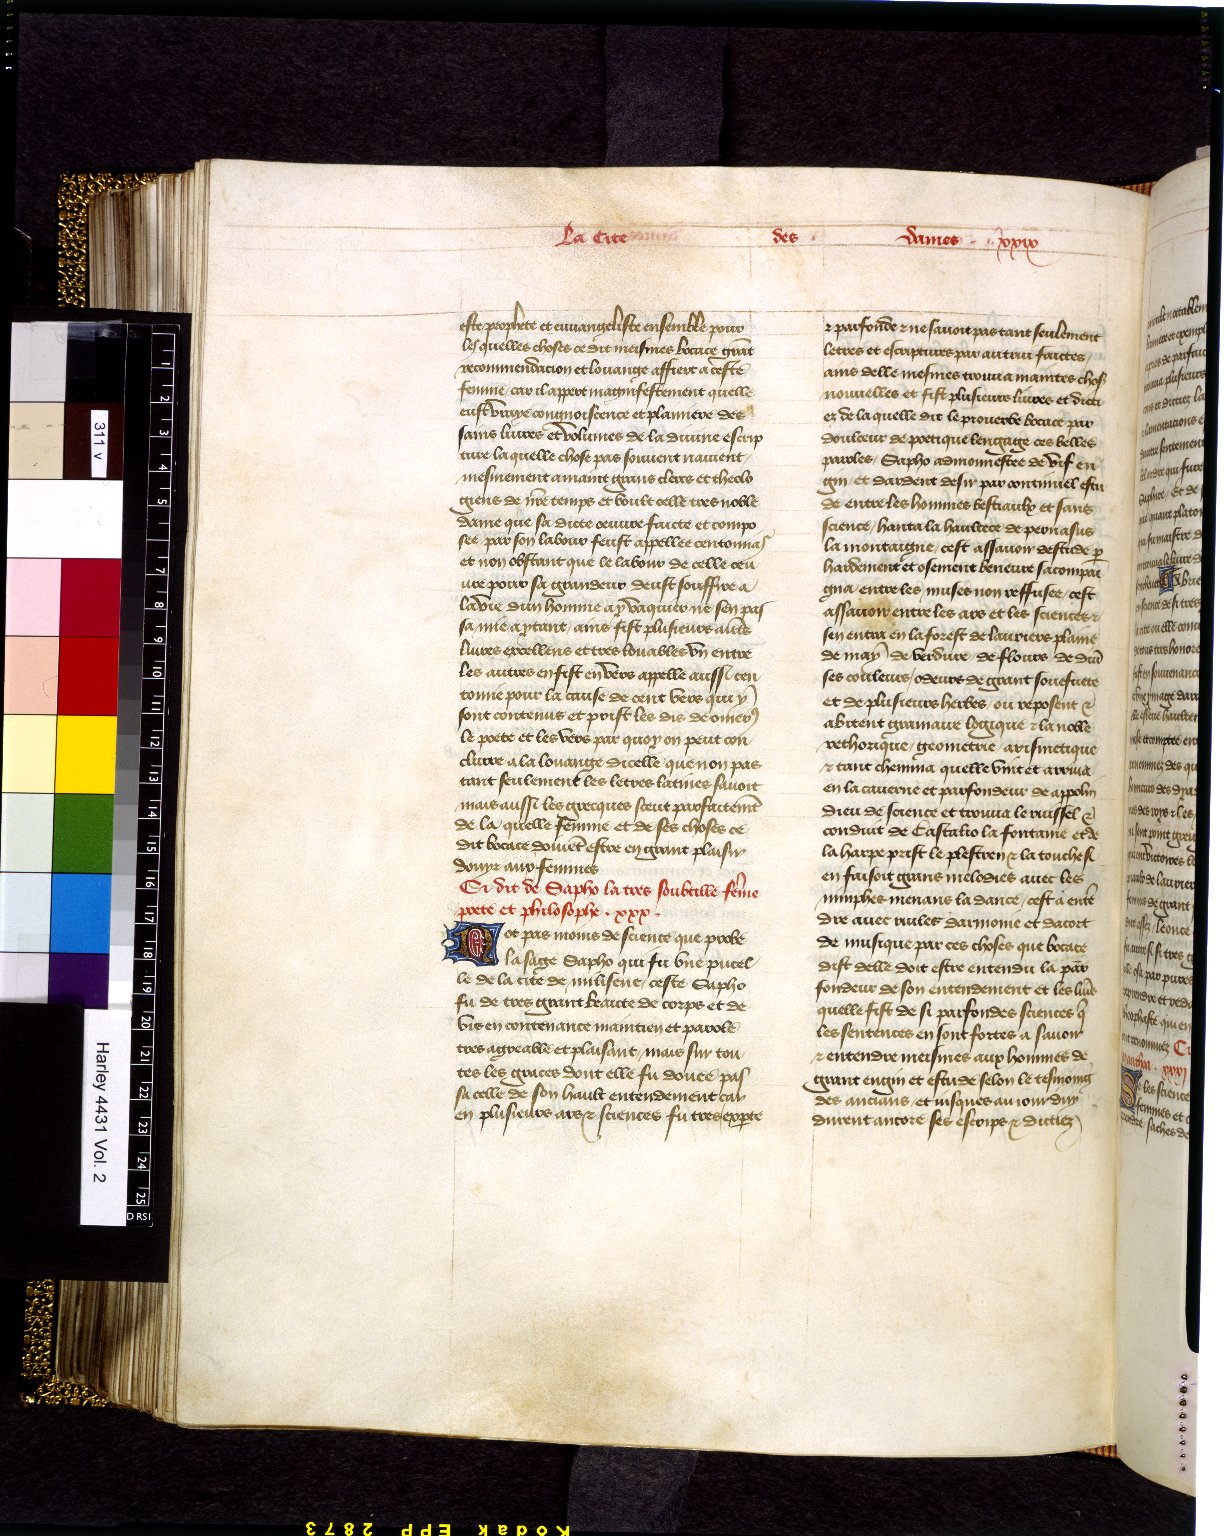 La Cite des dames . xxix
este prophete et euuangeliste ensemble pour
les quelles choses ce dit meismes bocace grāt
recommendacion et louange affiere a ceste
femme car il appert magnifestement quelle
eust vraye congnoiscence et planiere des
sains liures et volumes de la diuine escrip
ture la quelle chose pas souuent nauient
mesmement a maint grans clers et theolo
giens de n̄re temps et voult celle tres noble
dame que sa dicte oeuure faicte et compo
see par son labour feust appellee centonias
et non obstant que le labour de celle oeu
ure pour sa grandeur deust souffire a
la vie dun homme a y vaquier ne sen pas
sa mie a ytant ains fist plusieurs autres
liures excellens et tres louables vn entre
les autres en fist en vers appelle aussi cen
tonie pour la cause de cent vers qui y
sont contenus et prist les dis de omerus
le poete et les vers par quoy on peut con
clurre a la louange dicelle que non pas
tant seulement les letres latines sauoit
mais aussi les grecques sceut parfaitemēt
de la quelle femme et de ses choses ce
dit bocace doiuēt estre en grant plaisir
douyr aux femmes
Ci dit de Sapho la tres soubtille fēme
poete et philosophe . xxx .
Not pas moins de science que probe
la sage Sapho qui fu vne pucel
le de la cite de milisene ceste Sapho
fu de tres grant beaute de corps et de
vis en contenance maintien et parole
tres agreable et plaisant / mais sur tou
tes les graces dont elle fu douee pas
sa celle de son hault entendement car
en plusieurs ars & sciences fu tres experte
& parfonde & ne sauoit pas tant seulement
letres et escriptures par autrui faictes /
ains delle mesmes trouua maintes choses
nouuelles et fist plusieurs liures et dicti
ez de la quelle dit le prouerbe bocace par
doulceur de poetique lengage ces belles
paroles / Sapho admonnestee de vif en
gin / et dardent desir par continuel estu
de entre les hommes bestiaulx et sans
science / hanta la haultece de pernasus
la montaigne / cest assauoir destude p
hardement et osement beneure sacompai
gna / entre les muses non reffusee / cest
assauoir entre les ars et les sciences &
sen entra en la forest de lauriers plaine
de may de verdure / de flours de diuer
ses couleurs / odeurs de grant souefuete
et de plusieurs herbes / ou reposent &
abitent gramaire logique & la noble
rethorique / geometrie / arismetique
& tant chemina quelle vint et arriua
en la cauerne et parfondeur de appolin
dieu de science et trouua le ruissel &
conduit de Castalio la fontaine et de
la harpe prist le plestren & la touche si
en faisoit grans melodies auec les
nimphes menans la dance / cest a ente
dre auec rulles darmonie et dacort
de musique par ces choses que bocace
dist delle doit estre entendu la par
fondeur de son entendement et les liures
quelle fist de si parfondes sciences q̄
les sentences en sont fortes a sauoir
& entendre meismes aux hommes de
grant engin et estude selon le tesmoing
des ancians / et iusques au iour duy
durent ancore ses escrips & dictiez
311 v
Harley 4431 Vol. 2
1
2
3
4
5
7
8
9
10
11
12
13
14
15
16
17
18
19
20
21
22
23
24
25
D RSI
Kodak EPP 2873